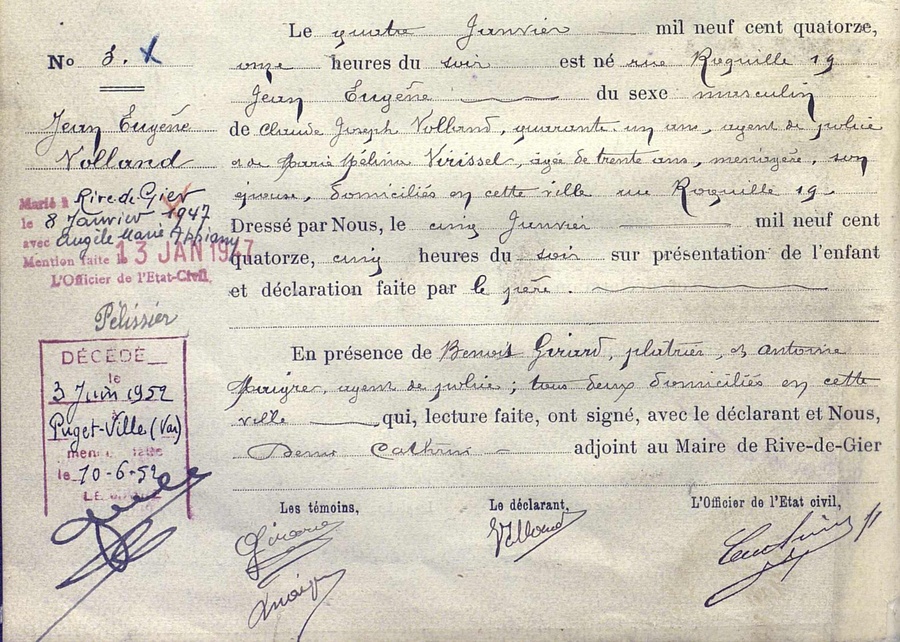 No 3. X
Jean Eugène
Volland
Marié à Rive de Gier
le 8 Janvier 1947
avec Angèle Marie
Mention faite 13 JAN 1947
L'Officier de l'Etat-Civil,
Pélissier
DÉCÉDÉ
le
3 Juin 1952
Puget-Ville (Var)
mention faite
le 10-6-52
Le quatre Janvier mil neuf cent quatorze,
onze heures du soir est né rue Roquille 19
Jean Eugène du sexe masculin
de Claude Joseph Volland, quarante un ans, agent de police
et de Marie Mélina Virissel, agée de trente ans, ménagère, son
épouse, domiciliés en cette ville rue Roquille 19.
Dressé par Nous, le cinq Janvier mil neuf cent
quatorze, cinq heures du soir sur présentation de l'enfant
et déclaration faite par le père.
En présence de Benoit Girard, platrier, et Antoine
Maigre, agent de police; tous deux domiciliés en cette
ville qui, lecture faite, ont signé, avec le déclarant et Nous,
adjoint au Maire de Rive-de-Gier
Les témoins, Le déclarant, L'Officier de l'Etat civil,
Girard Volland
Maigre